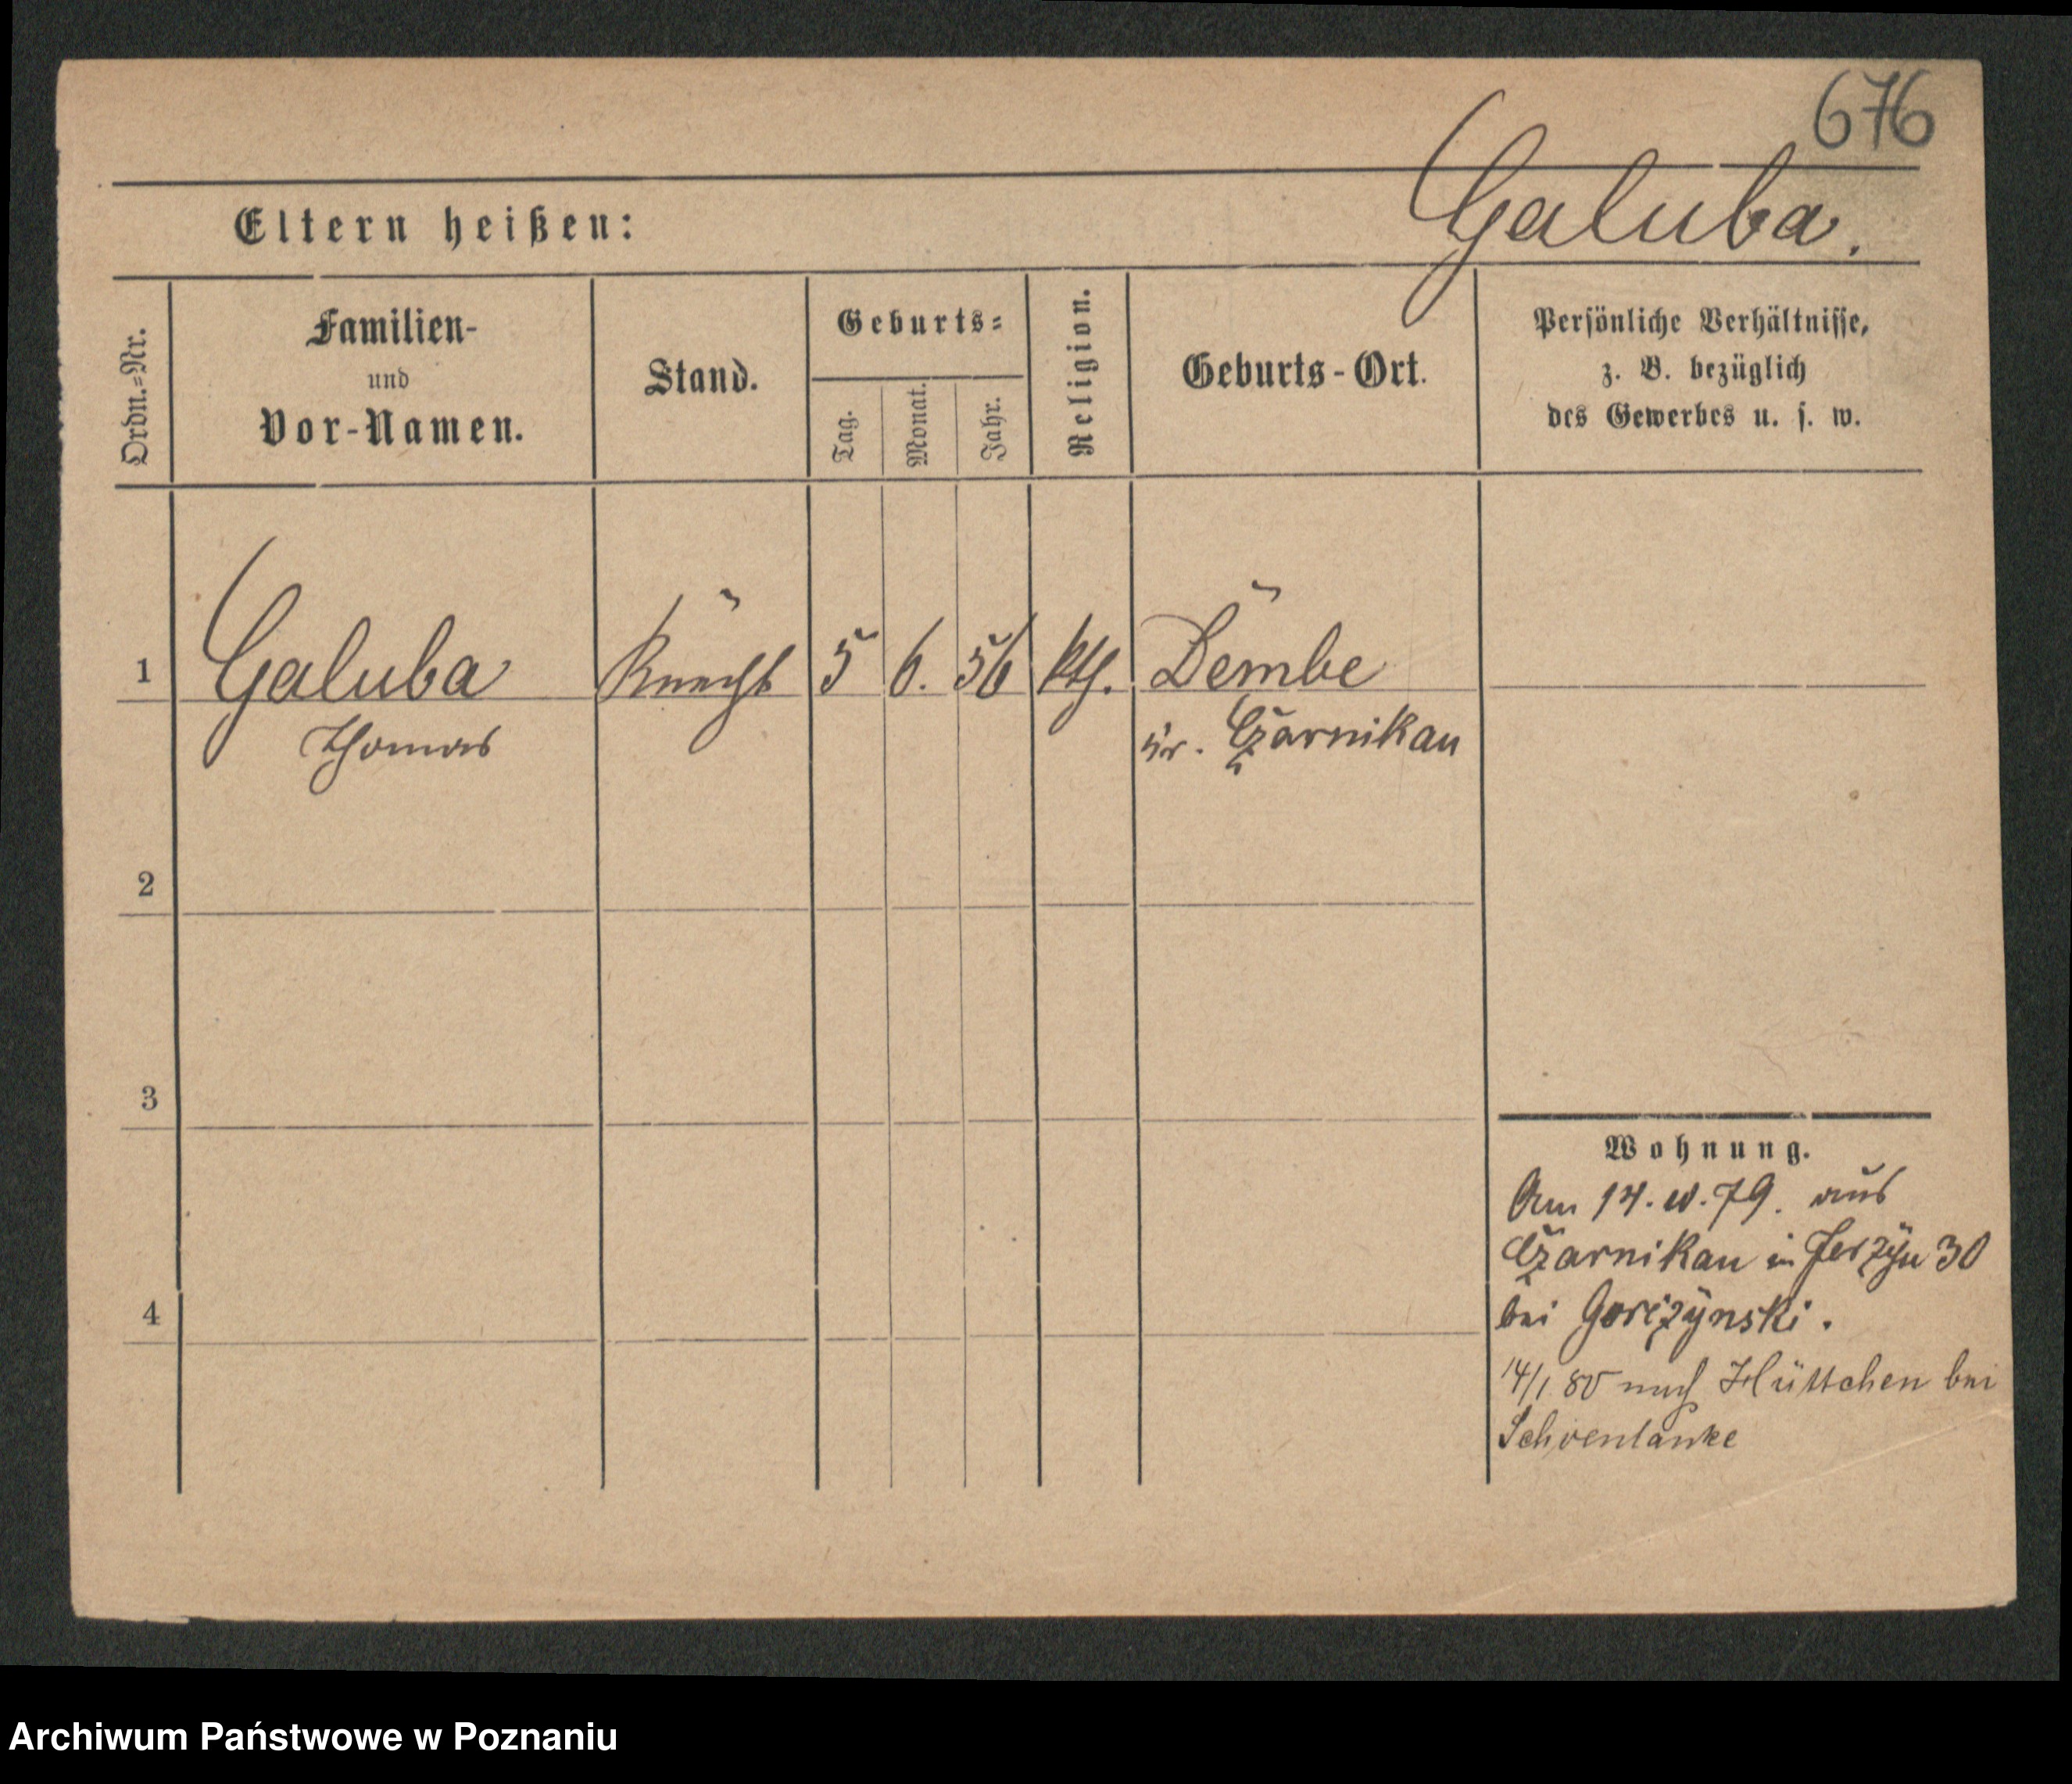 676
Galuba.
Eltern heißen:
Ordn.=Nr.
Familien-
und
Vor-Namen.
Stand.
Geburts=
Tag.
Monat.
Jahr.
Religion.
Geburts-Ort.
Persönliche Verhältnisse,
z. B. bezüglich
des Gewerbes u. s. w.
1 Galuba Knecht 5 6. 56 kth. Dembe
Thomas Czarnikau
2
3
4
Wohnung.
Am 14. 79. aus
Czarnikau in 30
bei Gorczynski.
14/1 80 nach Hüttchen bei
Schoenlanke
Archiwum Państwowe w Poznaniu